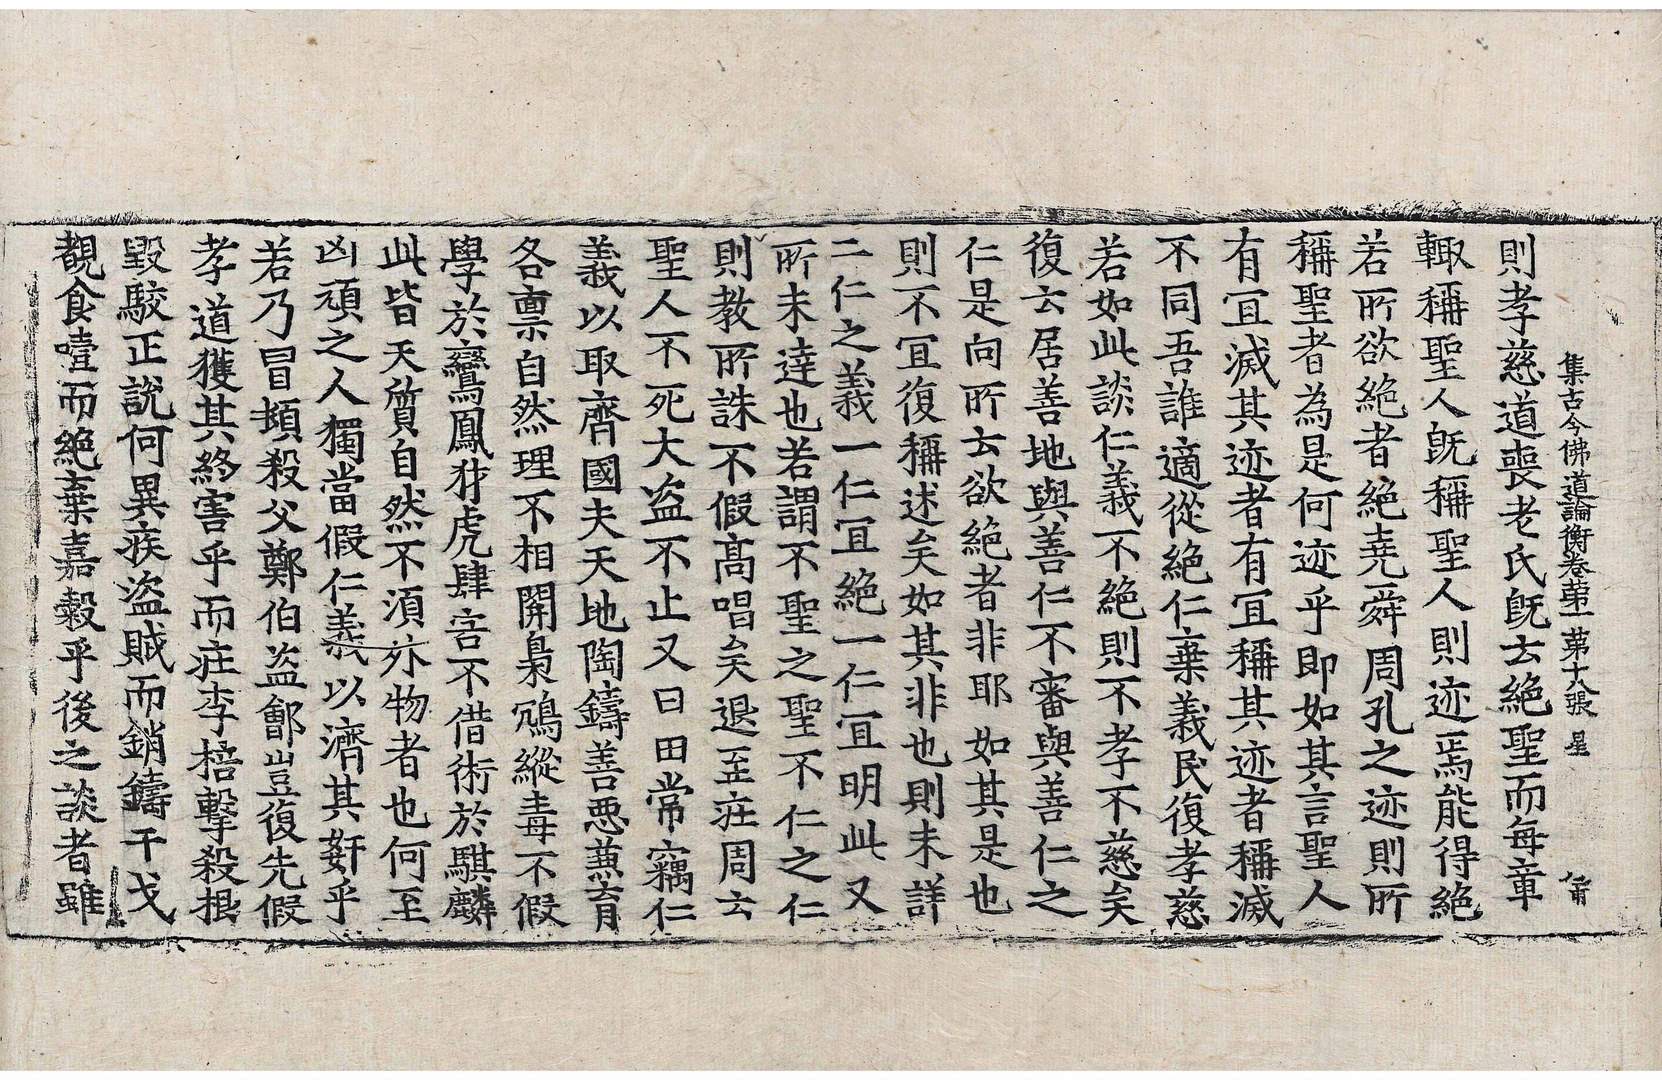 集古今佛道論衡卷苐一 苐十八張 星
則孝慈道喪老氏旣云絶聖而每章
輙稱聖人旣稱聖人則迹焉能得絶
若所欲絶者絶堯舜周孔之迹則所
稱聖者為是何迹乎即如其言聖人
有冝滅其迹者有冝稱其迹者稱滅
不同吾誰適從絶仁棄義民復孝慈
若如此談仁義不絶則不孝不慈矣
復云居善地與善仁不審與善仁之
仁是向所云欲絶者非耶如其是也
則不冝復稱述矣如其非也則未詳
二仁之義一仁冝絶一仁冝明此又
所未達也若謂不聖之聖不仁之仁
則教所誅不假高唱矣退至庄周云
聖人不死大盗不止又曰田常竊仁
義以取齊國夫天地陶鑄善惡兼育
各禀自然理不相關梟鴆縱毒不假
學於鸞鳳豺虎肆害不借術於騏麟
此皆天質自然不湏外物者也何至
凶頑之人獨當假仁義以濟其姧乎
若乃冒頓殺父鄭伯盗鄶豈復先假
孝道獲其終害乎而庄李掊擊殺根
毀駮正說何異疾盗賊而銷鑄干戈
覩食噎而絶棄嘉穀乎後之談者雖